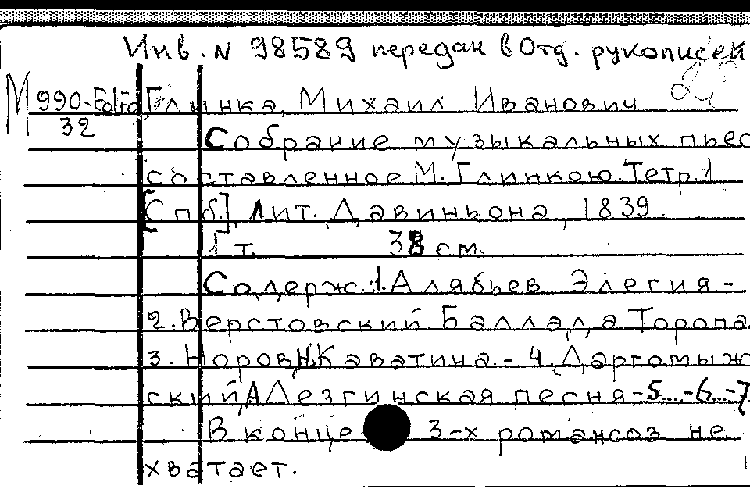 Инв. N 98589 передан в Отд. рукописей
М 990-Folio Глинка, Михаил Иванович
32 Собрание музыкальных пьес
составленное М. Глинкою. Тетр. 1
[Спб.], Лит. Давиньона, 1839.
1 т. 38 см.
Содерж.: 1. Алябьев Элегия -
2. Верстовский Баллада Торопа
3. Норов, Н. Каватина - 4. Даргомыж
ский, А. Лезгинская песня - 5...-6...-7
В конце 3-х романсов не
хватает.